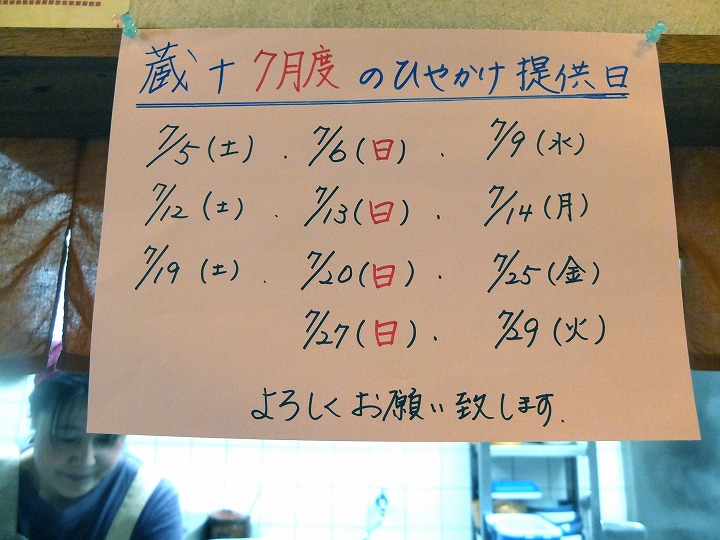 蔵十 7月度 のひやかけ提供日
7/5(土). 7/6(日). 7/9(水)
7/12(土). 7/13(日). 7/14(月)
7/19(土). 7/20(日). 7/25(金)
7/27(日). 7/29(火)
よろしくお願い致します.